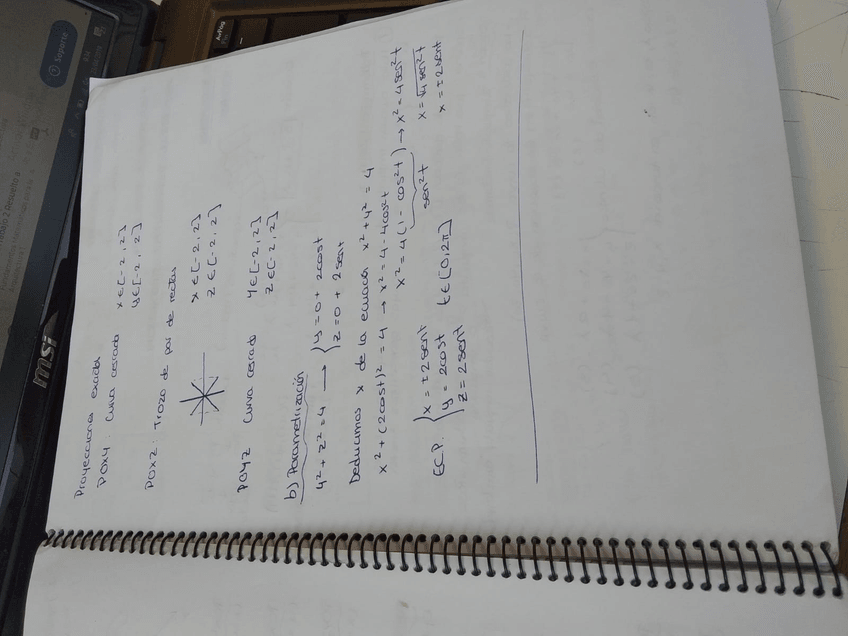 Proyecciones exactas
POXY: Curva cerrada x ∈ [-2, 2]
y ∈ [-2, 2]
POXZ: Trozo de par de rectas
x ∈ [-2, 2]
z ∈ [-2, 2]
POYZ Curva cerrada y ∈ [-2, 2]
z ∈ [-2, 2]
b) Parametrización
y² + z² = 4 → { y = 0 + 2cost
z = 0 + 2sent
Deducimos x de la ecuación x² + y² = 4
x² + (2cost)² = 4 → x² = 4 - 4cos²t
x² = 4 (1 - cos²t) → x² = 4sen²t
sen²t
x = √4sen²t
x = ±2sent
E.C.P. { x = ±2sent
y = 2cost t ∈ [0, 2π]
z = 2sent
msi
Soporte